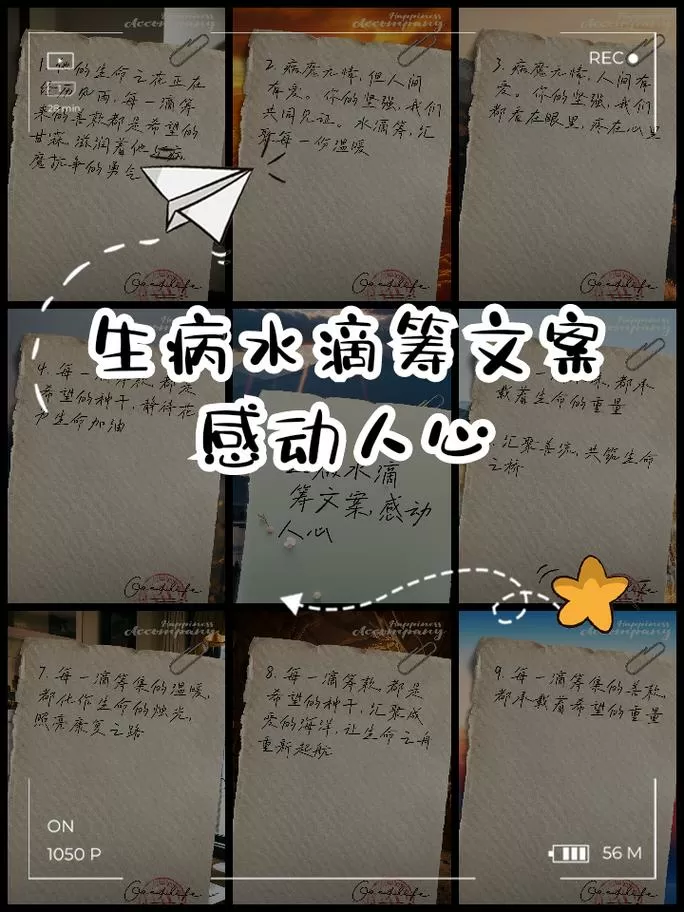 Happiness
Accompany
Happiness
Accompany
Happiness
Accompany
REC
28 min
1. 他的生命之花正在
经历风雨,每一滴筹
来的善款都是希望的
甘霖,滋润着他与病
魔抗争的勇气
2. 病魔无情,但人间
有爱。你的坚强,我们
共同见证。水滴筹,汇
聚每一份温暖
3. 病魔无情,人间有
爱。你的坚强,我们
都看在眼里,疼在心里
生病水滴筹文案
感动人心
4. 每一
希望的种子,静待花
为生命加油
筹文案,感动
人心
都承
载着生命的重量
汇聚善流,共筑生命
之桥
Happiness
Accompany
Happiness
Accompany
Happiness
Accompany
7. 每一滴筹集的温暖,
都化作生命的烛光,
照亮康复之路
8. 每一滴筹款,都是
希望的种子,汇聚成
爱的海洋,让生命之舟
重新起航
9. 每一滴筹集的善款,
都承载着希望的重量
ON
1050 P
56 M